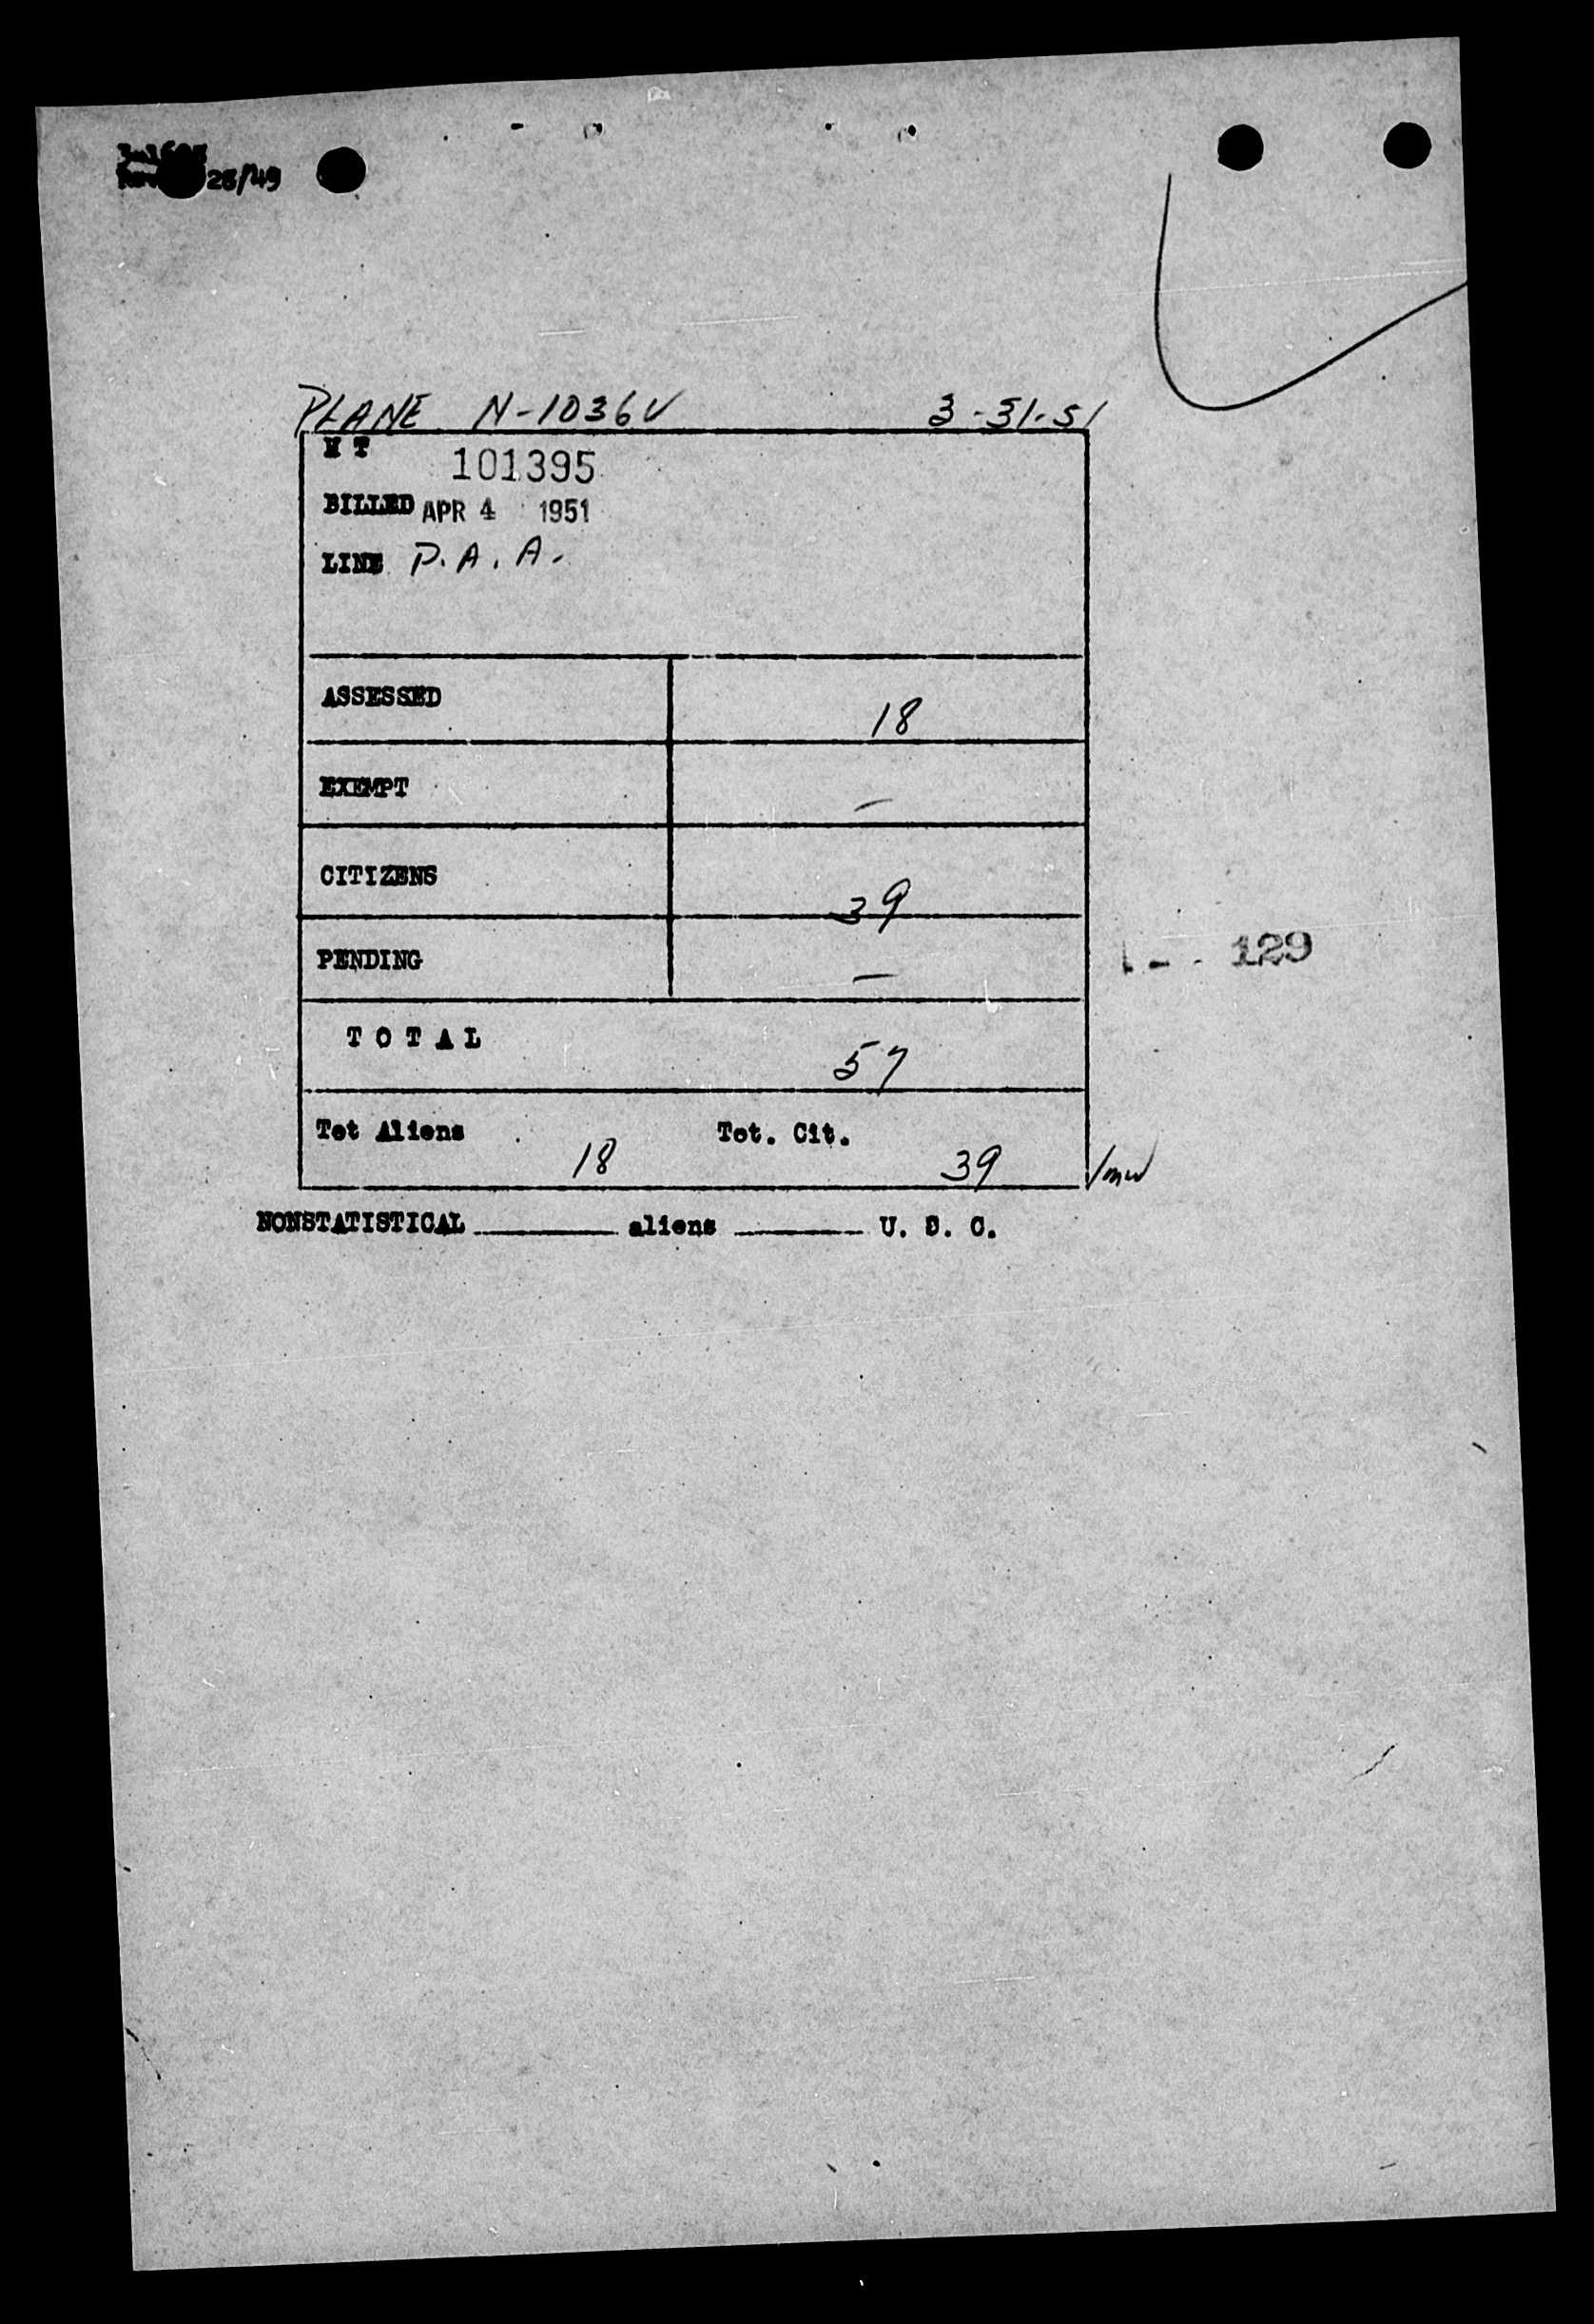 28/49
PLANE N-1036V 3-31-51
H T 101395
BILLED APR 4 1951
LINE P. A. A.
ASSESSED 18
EXEMPT —
CITIZENS 39
PENDING —
129
T O T A L 57
Tot Aliens 18 Tot. Cit. 39 /mw
NONSTATISTICAL ______ aliens ______ U. S. C.